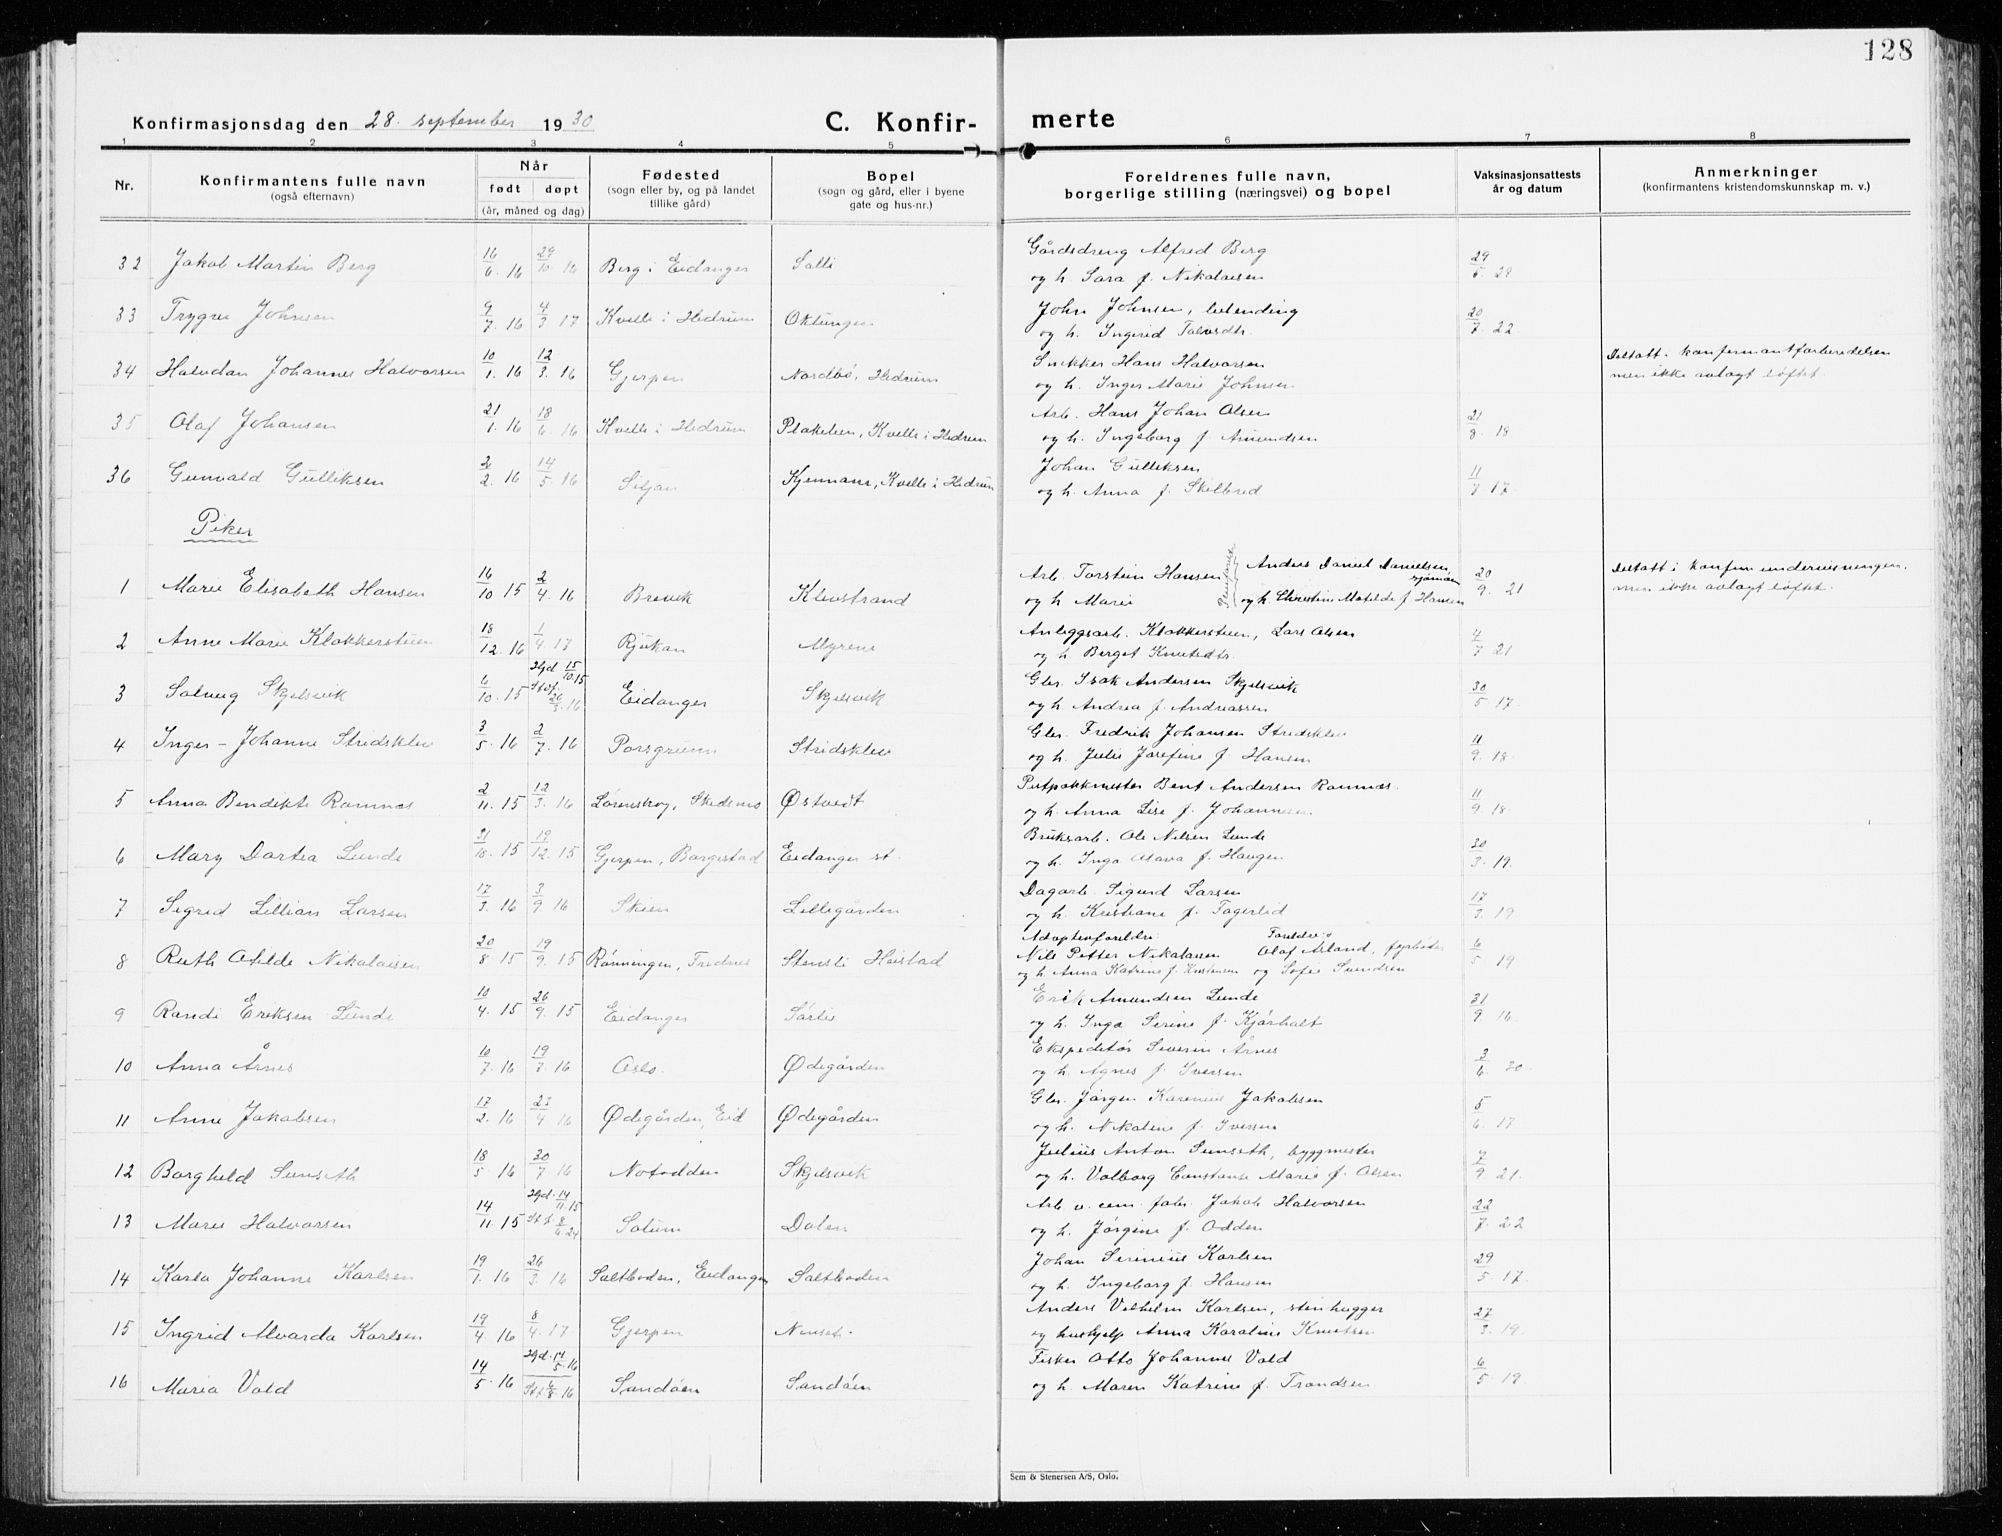 128
Konfirmasjonsdag den 28. september 1930
C. Konfir- merte
1 2 3 4 5 6 7 8
Nr.
Konfirmantens fulle navn
(også efternavn)
Når
født døpt
(år, måned og dag)
Fødested
(sogn eller by, og på landet
tillike gård)
Bopel
(sogn og gård, eller i byene
gate og hus-nr.)
Foreldrenes fulle navn,
borgerlige stilling (næringsvei) og bopel
Vaksinasjonsattests
år og datum
Anmerkninger
(konfirmantens kristendomskunnskap m. v.)
32 Jakob Martin Berg 16/6 16 29/10 16 Berg i Eidanger Salli Gårdsdreng Alfred Berg 29/5 28
og h. Sara f. Nikolaisen
33 Trygve Johnsen 9/7 16 4/3 17 Kvelle i Hedrum Oklungen John Johnsen, 20/7 22
og h. Ingerid
34 Halvdan Johannes Halvorsen 10/1 16 12/3 16 Gjerpen Nordbø, Hedrum Snekker Hans Halvorsen Deltatt i konfirmantforberedelsen
og h. Inger Marie Johnsen men ikke avlagt løftet.
35 Olaf Johansen 21/1 16 18/6 16 Kvelle i Hedrum Kvelle i Hedrum Arb. Hans Johan Olsen 21/8 18
og h. Ingeborg f. Amundsen
36 Gunvald Gulliksen 2/2 16 14/5 16 Siljan Kvelle i Hedrum Johan Gulliksen 11/7 17
og h. Anna f. Skilbred
Piker
1 Marie Elisabeth Hansen 16/10 15 2/4 16 Brevik Klevstrand Arb. Torstein Hansen Anders Daniel Danielsen, sjømann 20/9 21 Deltatt i konfirm. undervisningen,
og h. Marie Pleieforeldre og h. Christine Matilde f. Hansen men ikke avlagt løftet.
2 Anne Marie Klokkersteien 18/12 16 1/4 17 Rjukan Myrene Anleggsarb. Klokkersteien, Lars Olsen 4/7 21
og h. Berget Knutsdtr.
3 Solveig Skjelsvik 6/10 15 Hjd. 15/10 15 Stadf. 26/3 16 Eidanger Skjelsvik Gbr. Isak Andersen Skjelsvik 30/5 17
og h. Andrea f. Andreassen
4 Inger-Johanne Stridsklev 3/5 16 2/7 16 Porsgrunn Stridsklev Gbr. Fredrik Johansen Stridsklev 11/9 18
og h. Julie Josefine f. Hansen
5 Anna Bendikte Ramnas 2/11 15 12/3 16 Lørenskog, Skedsmo Østvedt Bent Andersen Ramnas. 11/9 18
og h. Anna Lise f. Johannesen
6 Mary Dortea Lunde 31/10 15 19/12 15 Gjerpen, Borgestad Eidanger st. Bruksarb. Ole Nilsen Lunde 30/3 19
og h. Inga Olava f. Haugen
7 Sigrid Lillian Larsen 17/3 16 3/9 16 Skien Lillegården Dagarb. Sigurd Larsen 17/3 19
og h. Kristiane f. Fagerlid
8 Ruth Otilde Nikolaisen 20/8 15 19/9 15 Rønningen, Frednes Stensli Heistad Adoptivforeldre: Foreldre: 6/5 19
Nils Petter Nikolaisen Olaf Ásland, fyrbøter
og h. Anna Katrine f. Kristensen og Sofie Svendsen
9 Randi Eriksen Lunde 10/4 15 26/9 15 Eidanger Sørlie Erik Amundsen Lunde 21/9 16
og h. Inga Serine f. Kjørholt
10 Anna Årnes 16/7 16 19/3 16 Oslo. Ødegården Ekspeditør Severin Årnes 3/6 30
og h. Agnes f. Iversen
11 Anne Jakobsen 17/2 16 23/4 16 Ødegården, Eid Ødegården Gbr. Jørgen Karenius Jakobsen 5/6 17
og h. Nikoline f. Iversen
12 Borghild Sunseth 18/5 16 30/7 16 Notodden Skjelsvik Julius Anton Sunseth, byggmester 7/9 21.
og h. Valborg Constanse Marie f. Olsen
13 Marie Halvorsen 14/11 15 Hjd. 14/11 15 Solum Dalen Arb. v. cem. fabr. Jakob Halvorsen 22/7 22
og h. Jørgine f. Odden
14 Karla Johanne Karlsen 19/1 16 26/3 16 Saltboden, Eidanger Saltboden Johan Serinius Karlsen 29/5 17.
og h. Ingeborg f. Hansen
15 Ingrid Alvarda Karlsen 19/4 16 8/4 17 Gjerpen Nenset. Anders Vilhelm Karlsen, stenhugger 27/3 19.
og hushjelp Anna Karoline Knutsen
16 Maria Vold 14/5 16 Hjd. 14/5 16 St. f. 6/8 16 Sandøen Sandøen Fisker Otto Johannes Vold 6/5 19.
og h. Maren Katrine f. Trondsen
Sem & Stenersen A/S, Oslo.